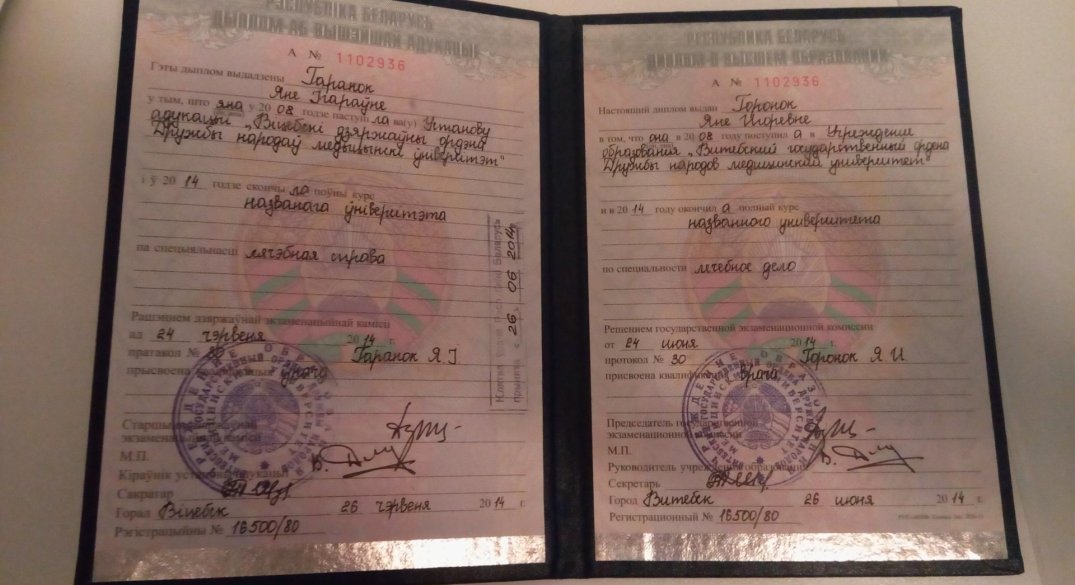 РЭСПУБЛІКА БЕЛАРУСЬ
ДЫПЛОМ АБ ВЫШЭЙШАЙ АДУКАЦЫІ
А № 1102936
Гэты дыплом выдадзены Таранок
Яне Ігараўне
у тым, што яна у 20 08 годзе паступі ла ва(у) Установу
адукацыі „Віцебскі дзяржаўны ордэна
Дружбы народаў медыцынскі ўніверсітэт"
і ў 20 14 годзе скончы ла поўны курс
названага ўніверсітэта
па спецыяльнасці лячэбная справа
Рашэннем дзяржаўнай экзаменацыйнай камісіі
ад 24 чэрвеня 20 14 г.
пратакол № 30 Таранок Я.І.
прысвоена урача
Старшыня
экзаменацыйнай камісіі
М.П.
Кіраўнік установы адукацыі
Сакратар
Горад Віцебск 26 чэрвеня 20 14 г.
Рэгістрацыйны № 16500/80
26 06 2014
РЕСПУБЛИКА БЕЛАРУСЬ
ДИПЛОМ О ВЫСШЕМ ОБРАЗОВАНИИ
А № 1102936
Настоящий диплом выдан Торонок
Яне Игоревне
в том, что она в 20 08 году поступил а в Учреждение
образования „Витебский государственный ордена
Дружбы народов медицинский университет"
и в 20 14 году окончил а полный курс
названного университета
по специальности лечебное дело
Решением государственной экзаменационной комиссии
от 24 июня 20 14 г.
протокол № 30 Торонок Я.И.
присвоена квалификация врача
Председатель государственной
экзаменационной комиссии
М.П.
Руководитель учреждения образования
Секретарь
Город Витебск 26 июня 20 14 г.
Регистрационный № 16500/80